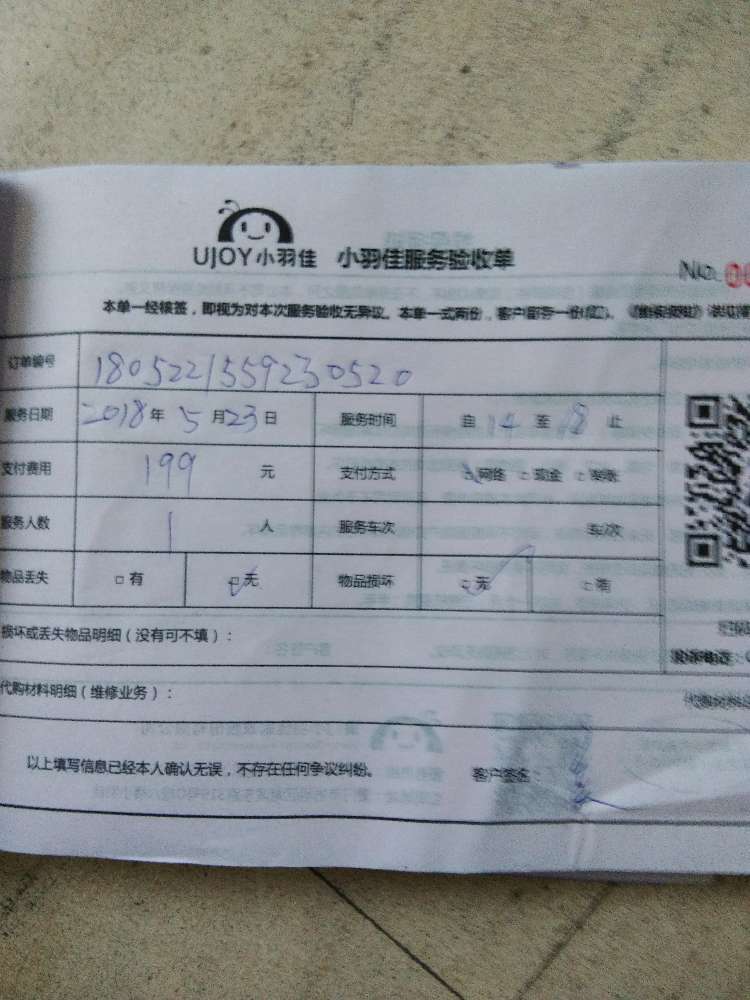 UJOY小羽佳 小羽佳服务验收单
NO. 00
本单一经核签，即视为对本次服务验收无异议。本单一式两份，客户留存一份(红)。
订单编号 1805221559230520
服务日期 2018年 5月23日 服务时间 自 14 至 18 止
支付费用 199 元 支付方式 网络 现金
服务人数 1 人 服务车次 车/次
物品丢失 □有 □无 物品损坏 □无 □有
损坏或丢失物品明细（没有可不填）：
代购材料明细（维修业务）：
以上填写信息已经本人确认无误，不存在任何争议纠纷。 客户签名：